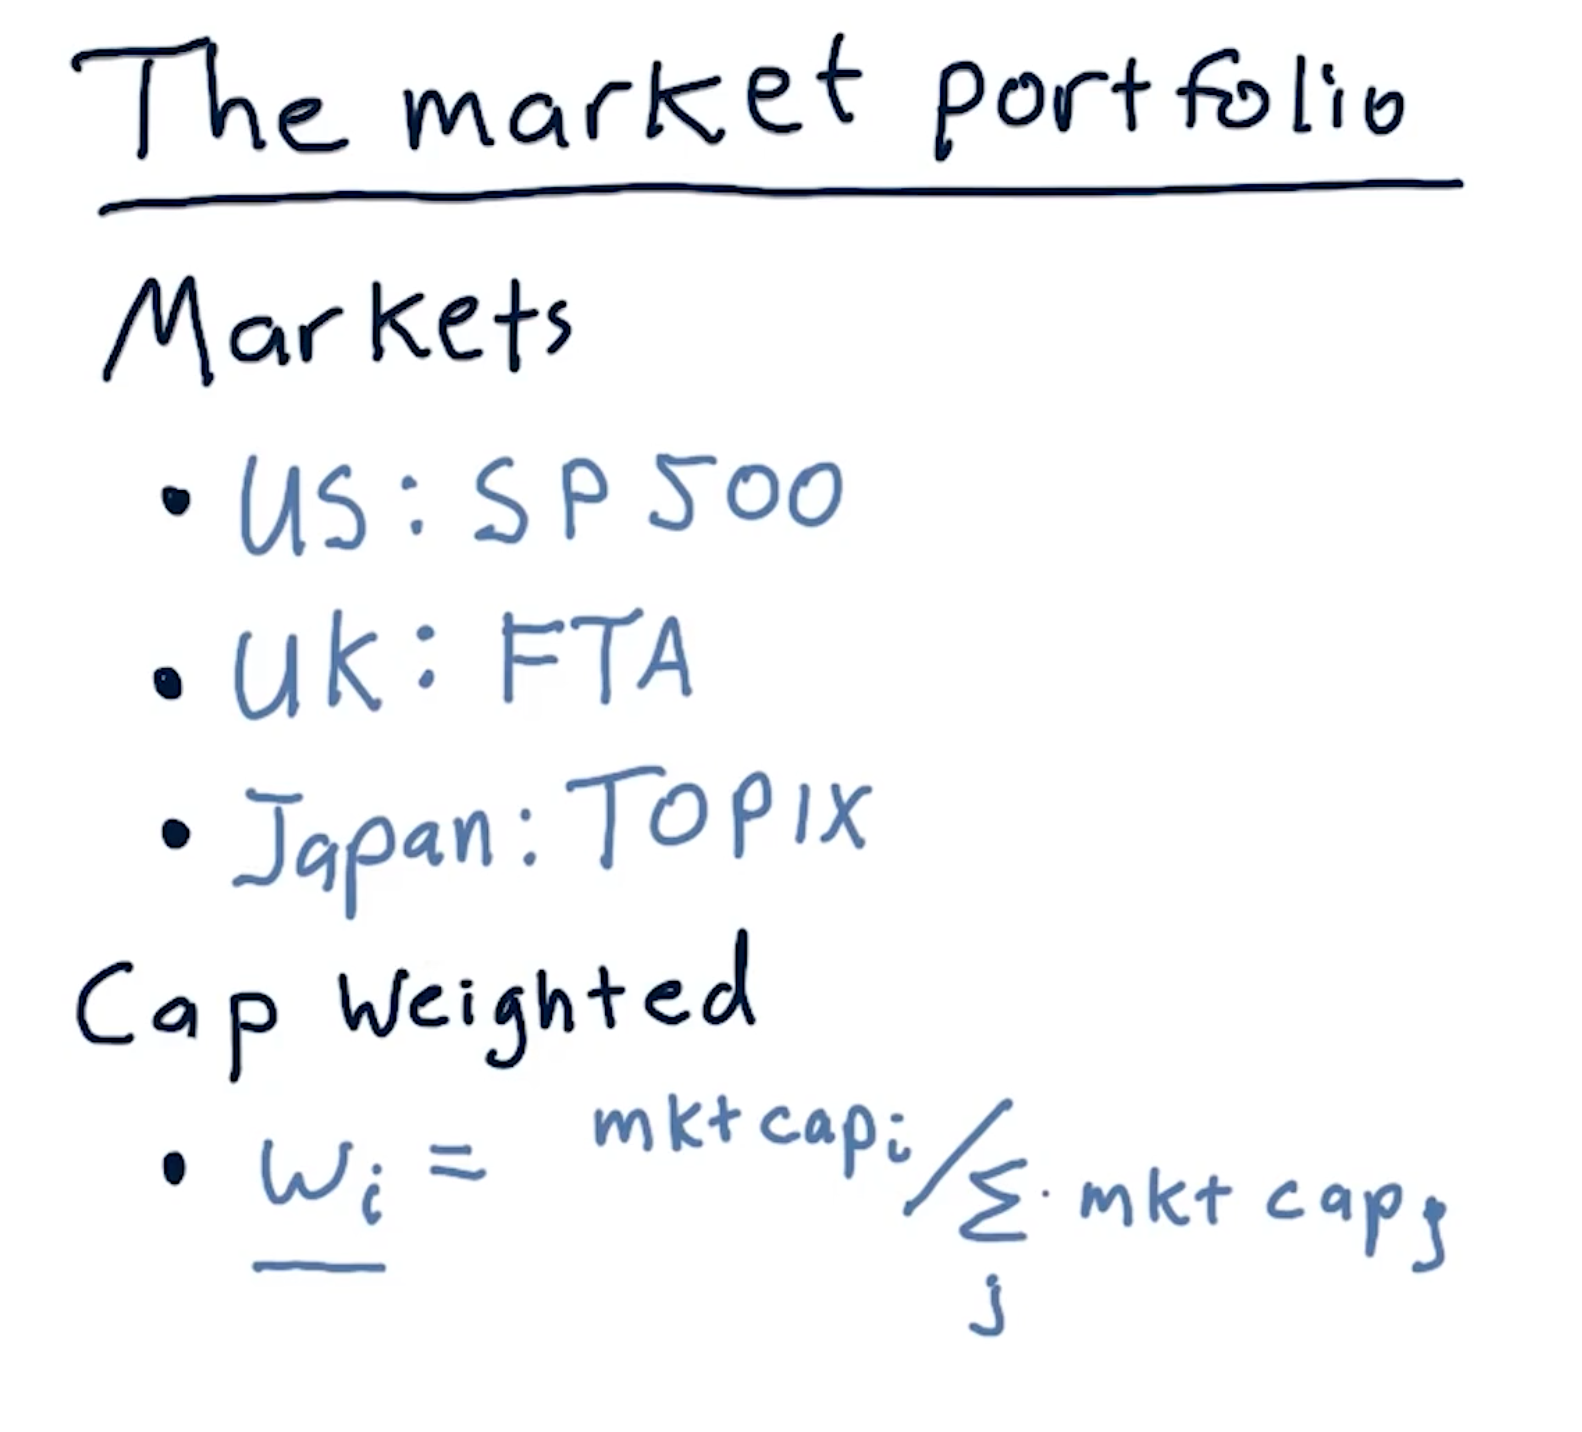 The market portfolio
Markets
• US: SP 500
• UK: FTA
• Japan: TOPIX
Cap Weighted
• wi = mkt capi / Σ mkt capj
j